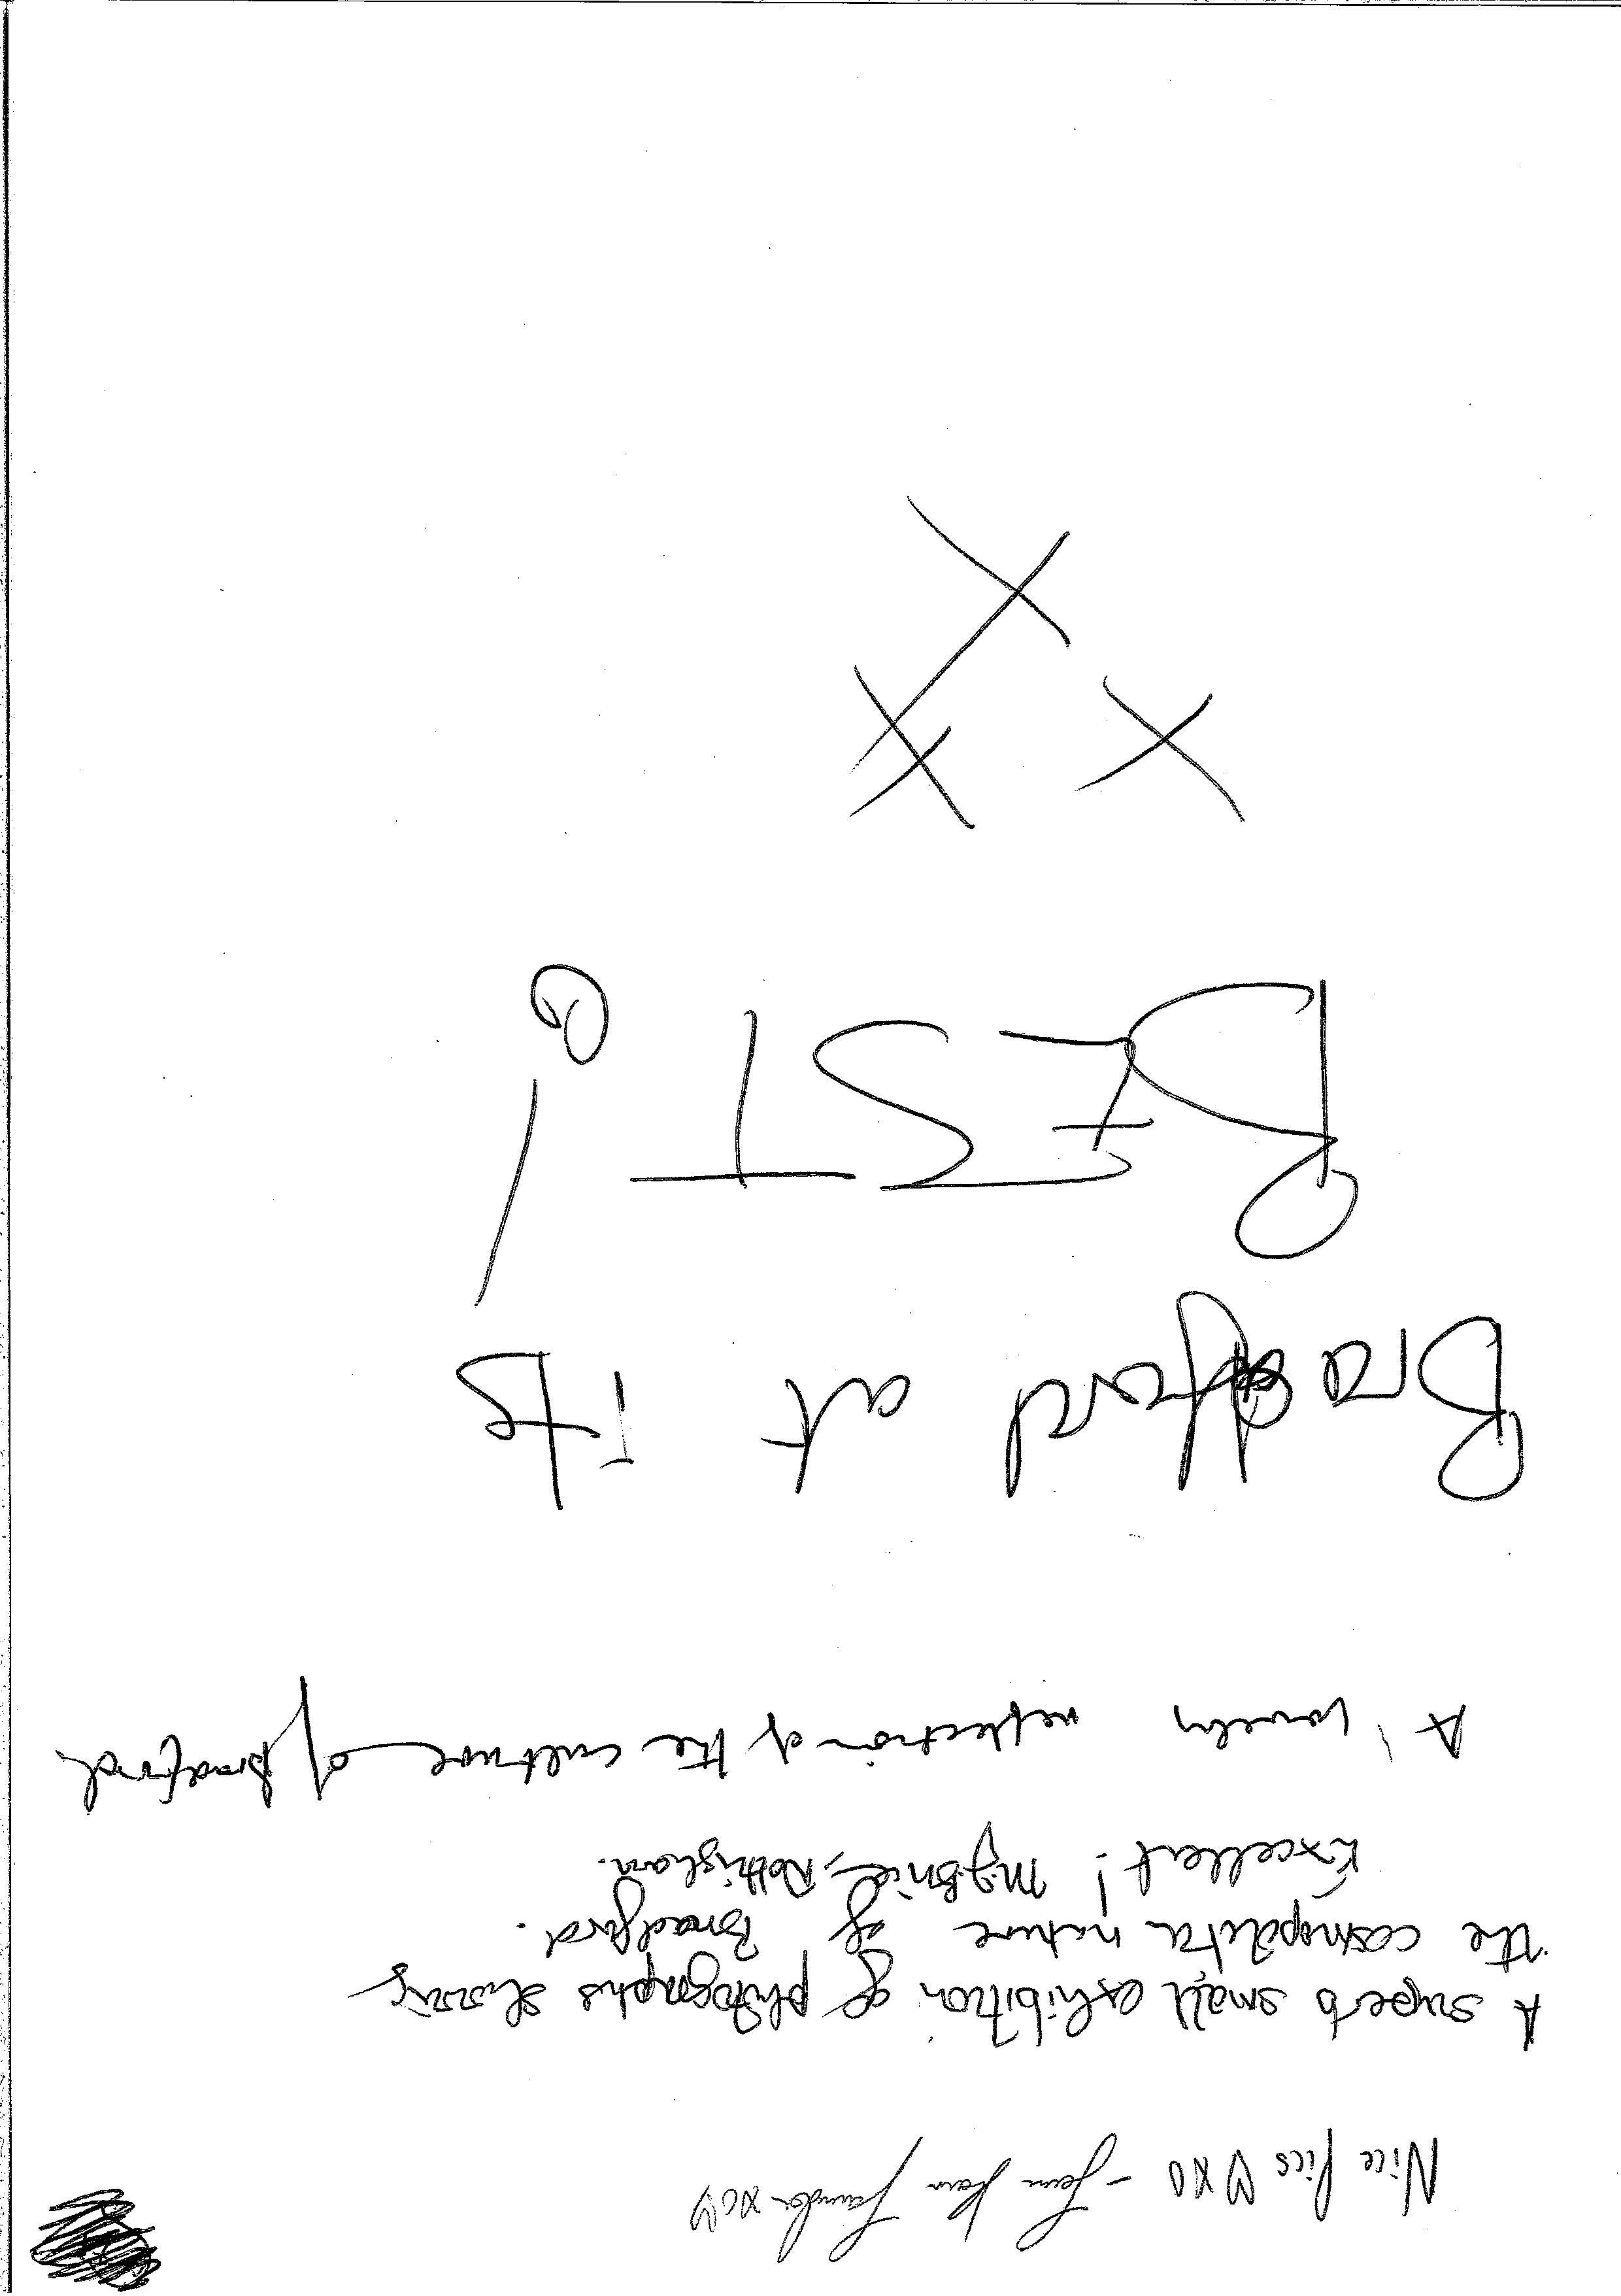 Nice pics ♡XO -
A superb small exhibition of photographs showing
the cosmopolitan nature of Bradford.
Excellent! Nottingham.
A lovely reflection of the culture of Bradford.
Bradford at its
BEST!
XXX